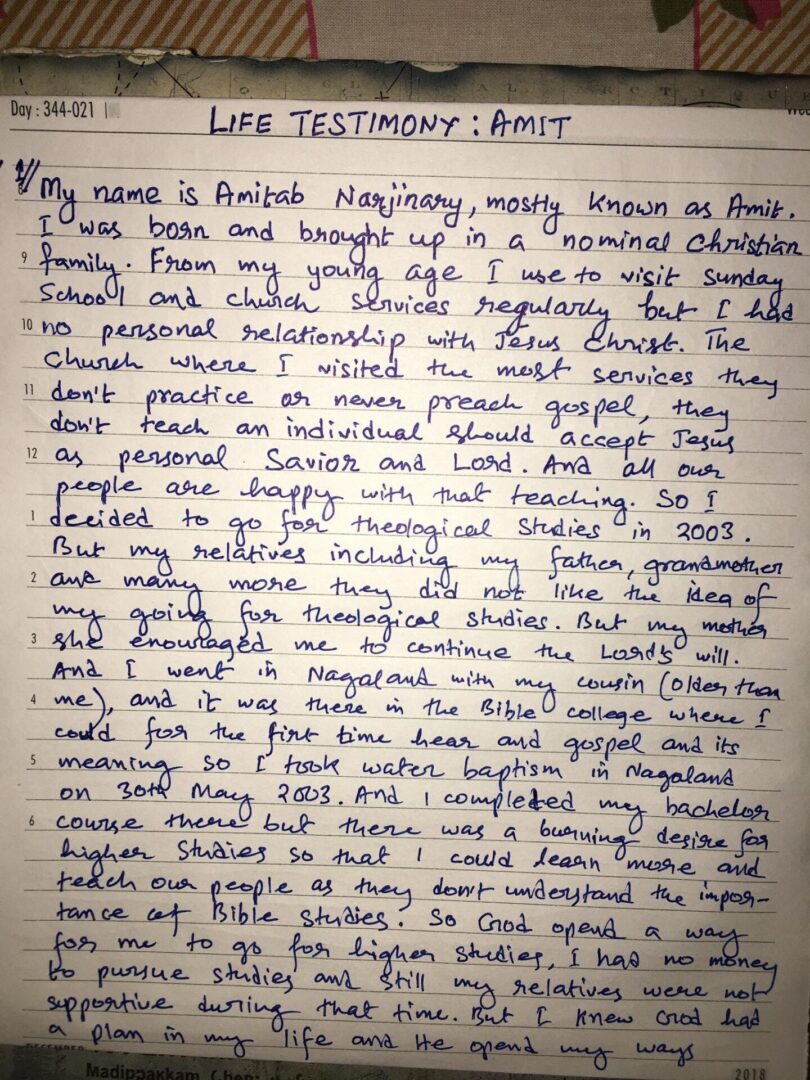 Day : 344-021
LIFE TESTIMONY : AMIT
1//
8 My name is Amitab Narjinary, mostly known as Amit.
I was born and brought up in a nominal Christian
9 family. From my young age I use to visit Sunday
School and church services regularly but I had
10 no personal relationship with Jesus Christ. The
Church where I visited the most services they
11 don't practice or never preach gospel, they
don't teach an individual should accept Jesus
12 as personal Savior and Lord. And all our
people are happy with that teaching. So I
1 decided to go for theological Studies in 2003.
But my relatives including my father, grandmother
2 and many more they did not like the idea of
my going for theological studies. But my mother
3 she enouraged me to continue the Lord's will.
And I went in Nagaland with my cousin (older than
4 me), and it was there in the Bible college where I
could for the first time hear and gospel and its
5 meaning so I took water baptism in Nagaland
on 30th May 2003. And I completed my bachelor
6 course there but there was a burning desire for
higher Studies so that I could learn more and
teach our people as they don't understand the impor-
tance of Bible Studies. So God opend a way
for me to go for higher studies, I had no money
to pursue studies and still my relatives were not
supportive during that time. But I knew God had
a plan in my life and He opend my ways
DECEMBER
Madippakkam
2018